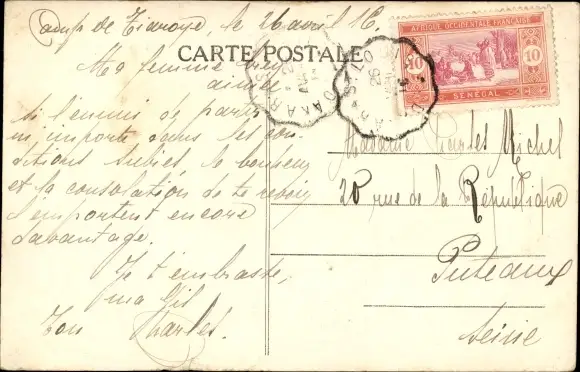 Camp de Tiaroye, le 26 avril 16.
CARTE POSTALE
AFRIQUE OCCIDENTALE FRANÇAISE
10 10
SÉNÉGAL
Ma femme
aimée
si l'ennui de partir
m'importe dans les con
ditions subies le bonheur
et la consolation de te revoir
l'emportent encore
davantage.
Je t'embrasse,
ma
Ton Charles.
Madame Charles Michel
20 rue de la République
Puteaux
Seine